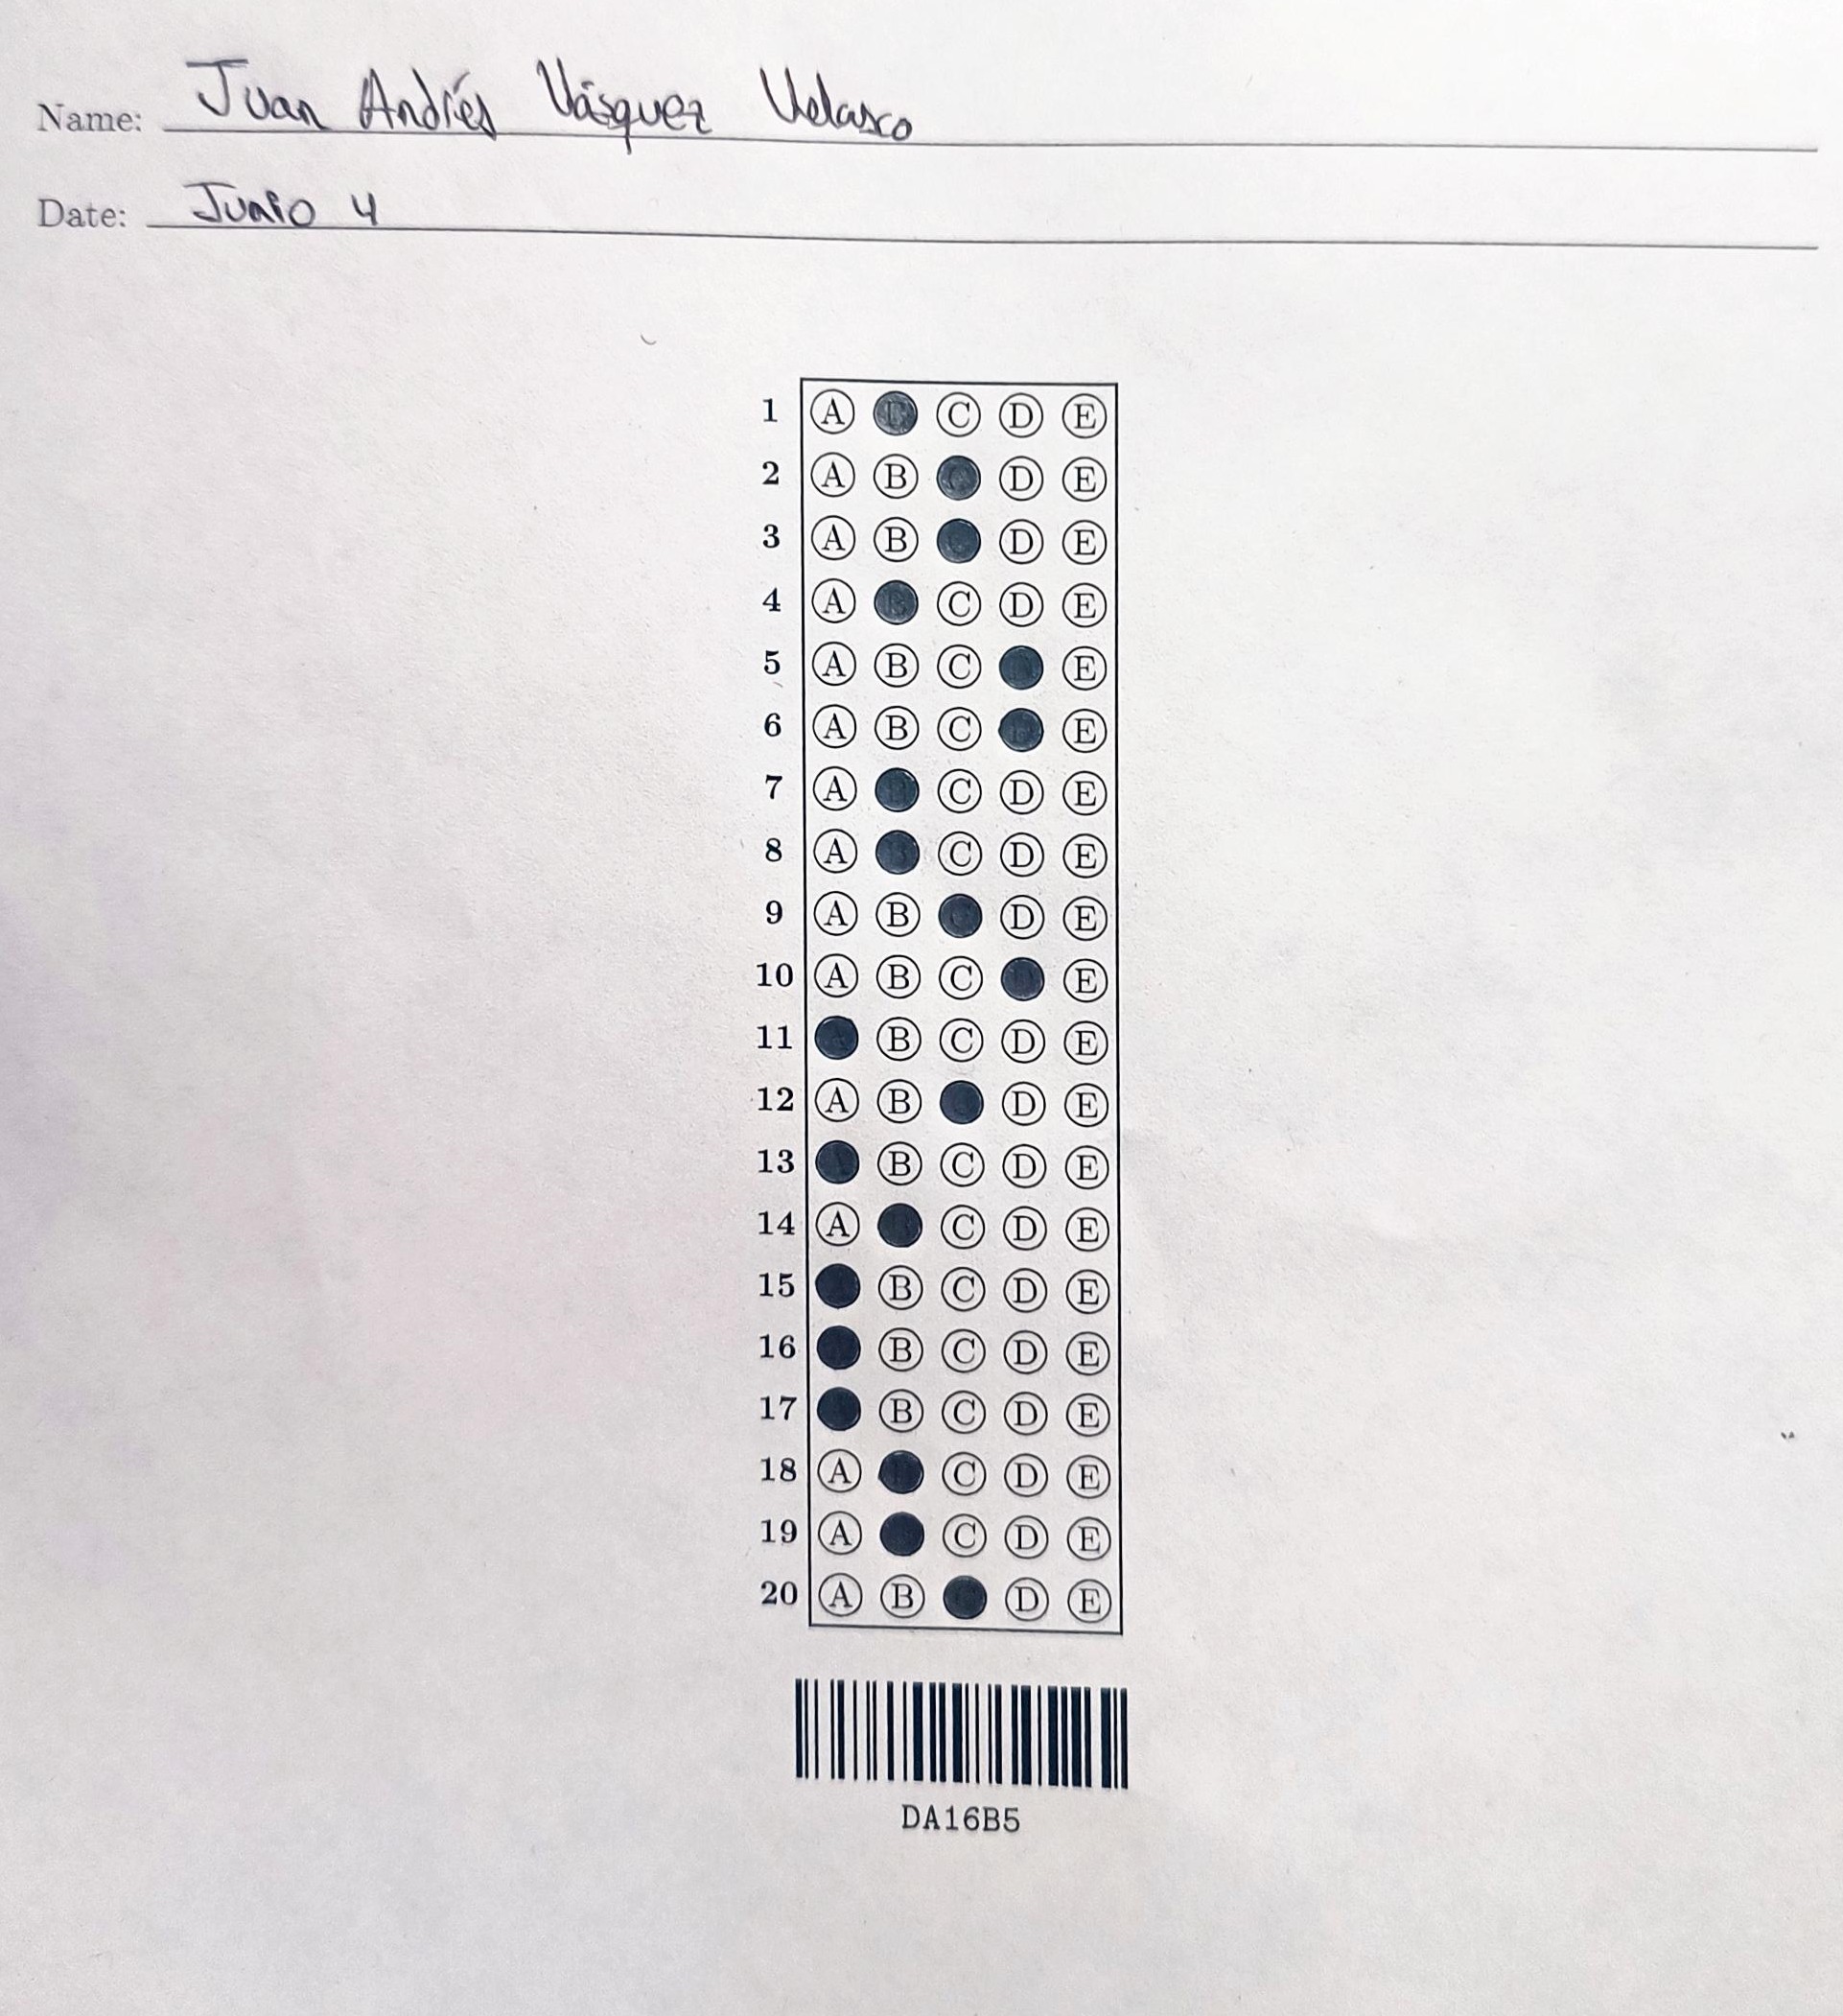 Name: Juan Andrés Vásquez Velasco
Date: Junio 4
1 A B C D E
2 A B C D E
3 A B C D E
4 A B C D E
5 A B C D E
6 A B C D E
7 A B C D E
8 A B C D E
9 A B C D E
10 A B C D E
11 A B C D E
12 A B C D E
13 B C D E
14 A C D E
15 B C D E
16 B C D E
17 B C D E
18 A C D E
19 A C D E
20 A B D E
DA16B5